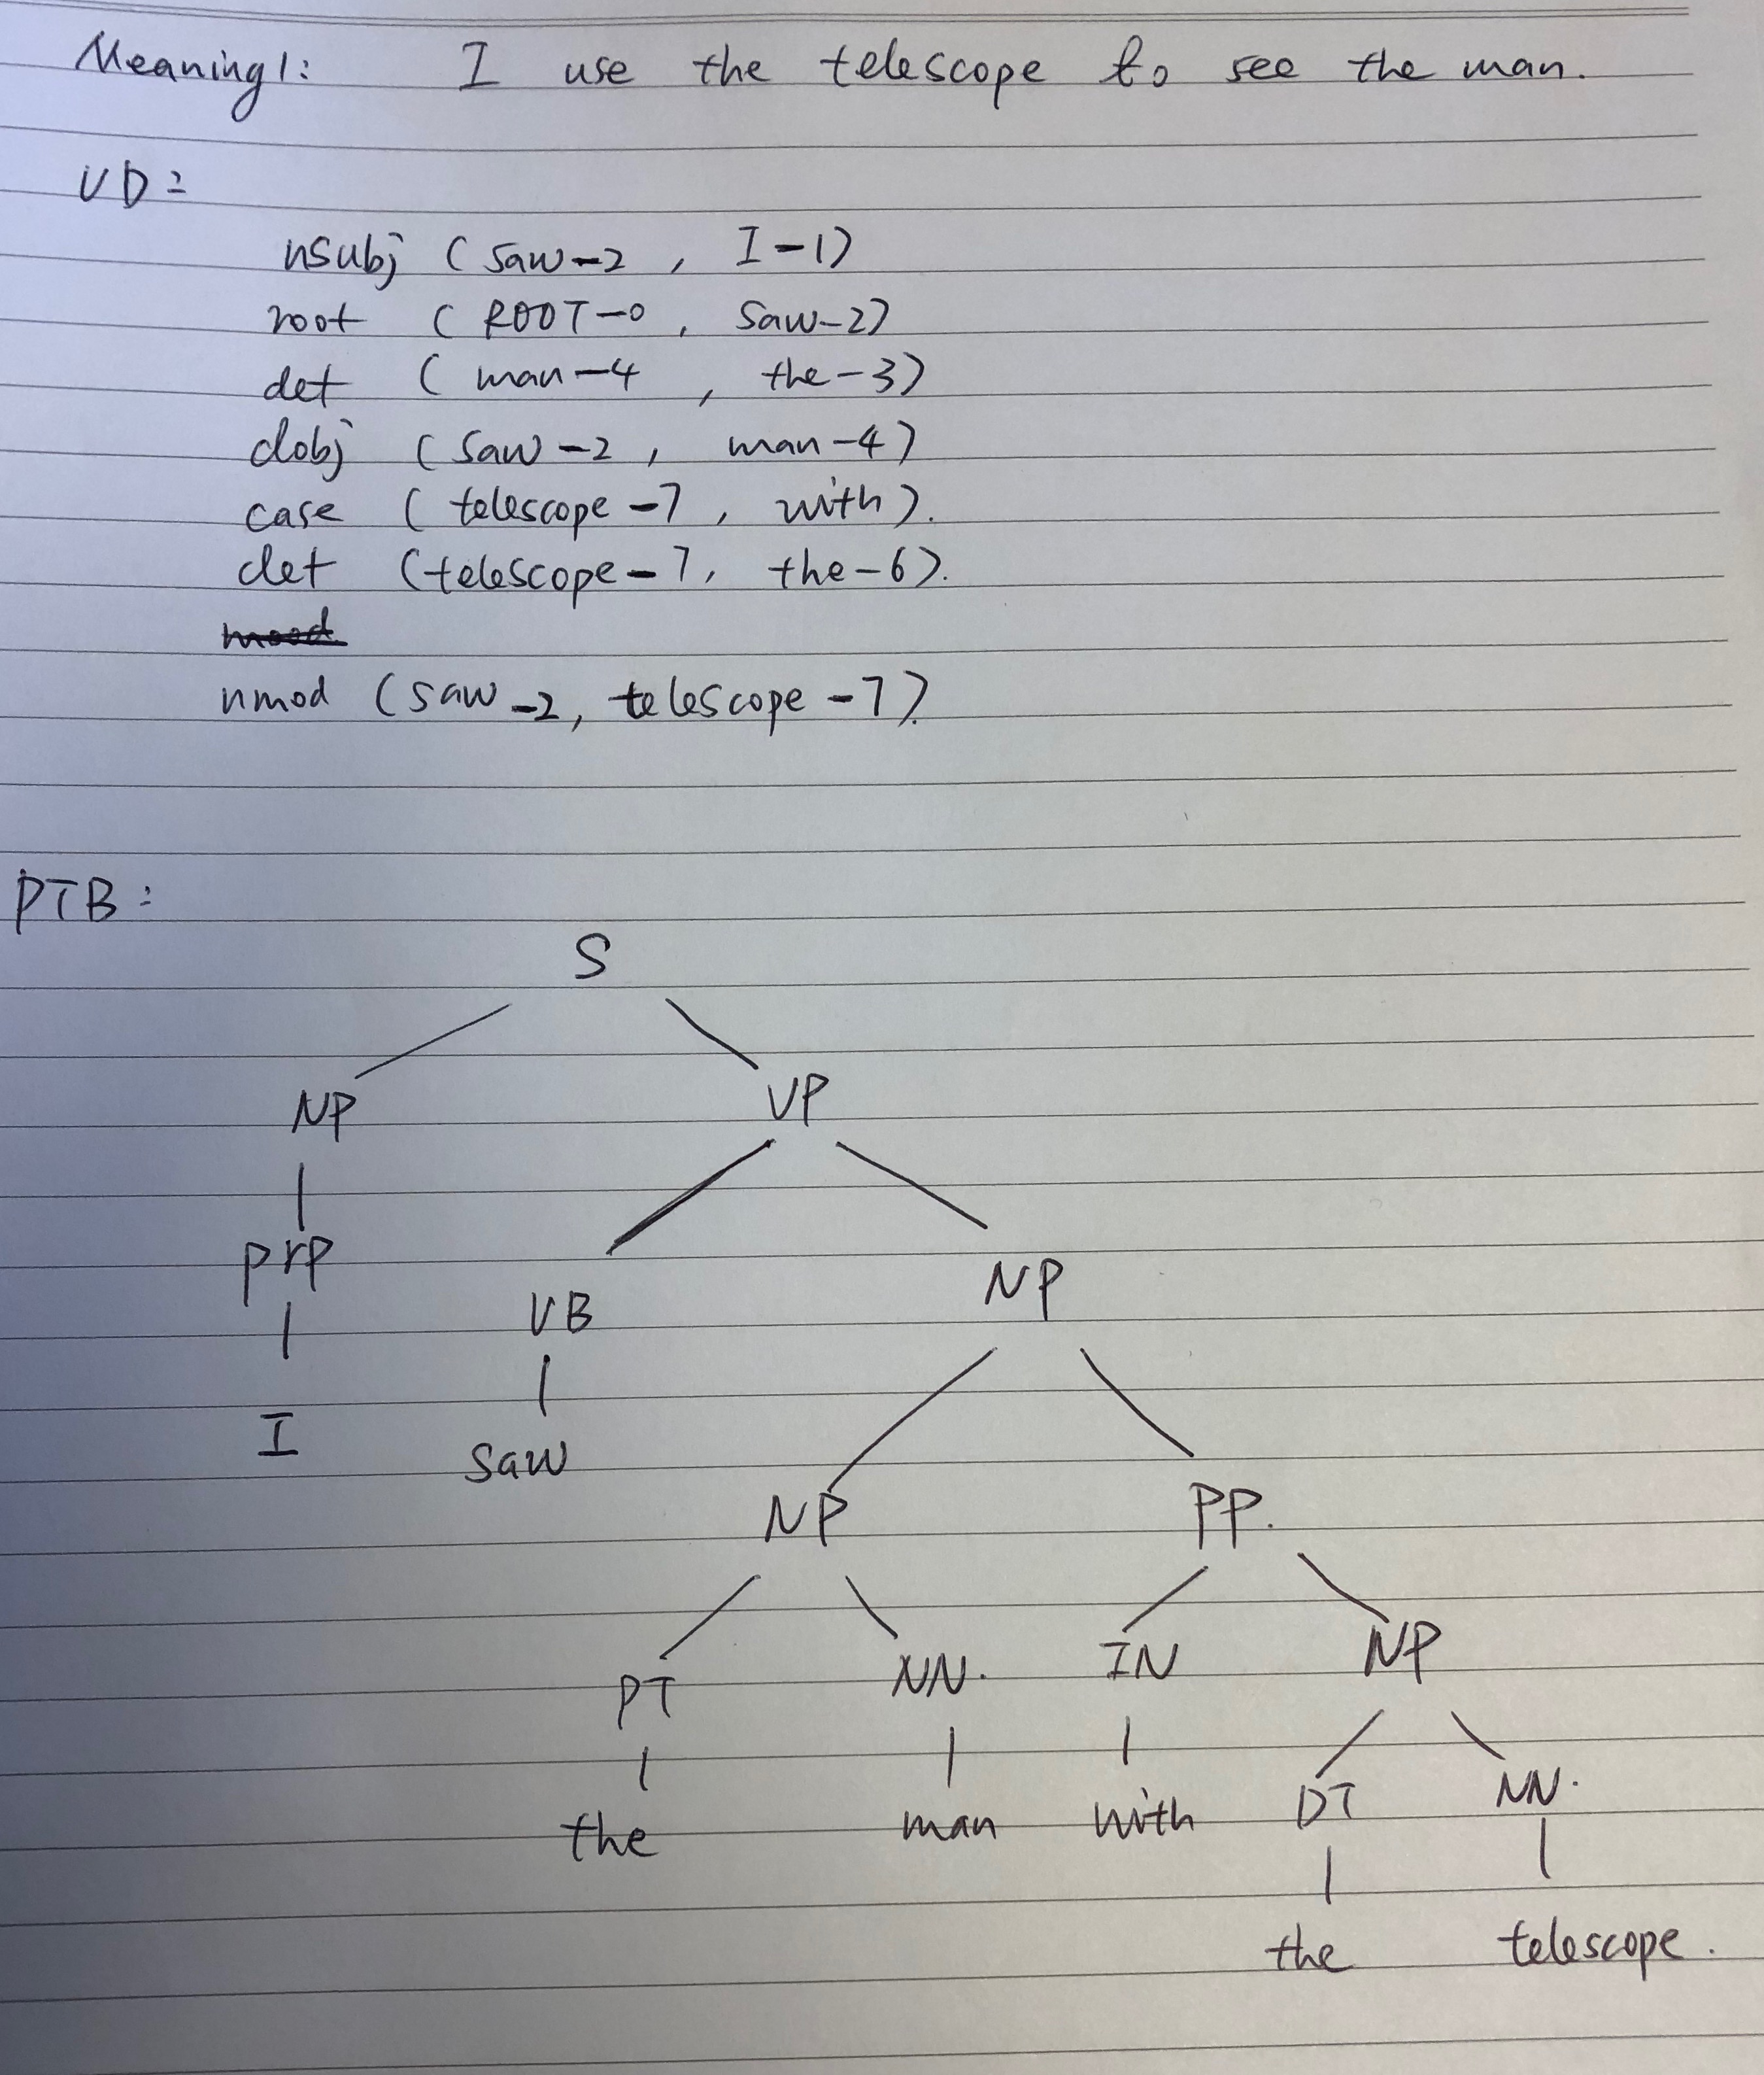 Meaning1: I use the telescope to see the man.
UD:
nsubj (saw-2, I-1)
root (ROOT-0, saw-2)
det (man-4, the-3)
dobj (saw-2, man-4)
case (telescope-7, with).
det (telescope-7, the-6).
nmod (saw-2, telescope-7).
PTB:
S
NP VP
prp VB NP
I saw
NP PP.
PT NN. IN NP
the man with DT NN.
the telescope.